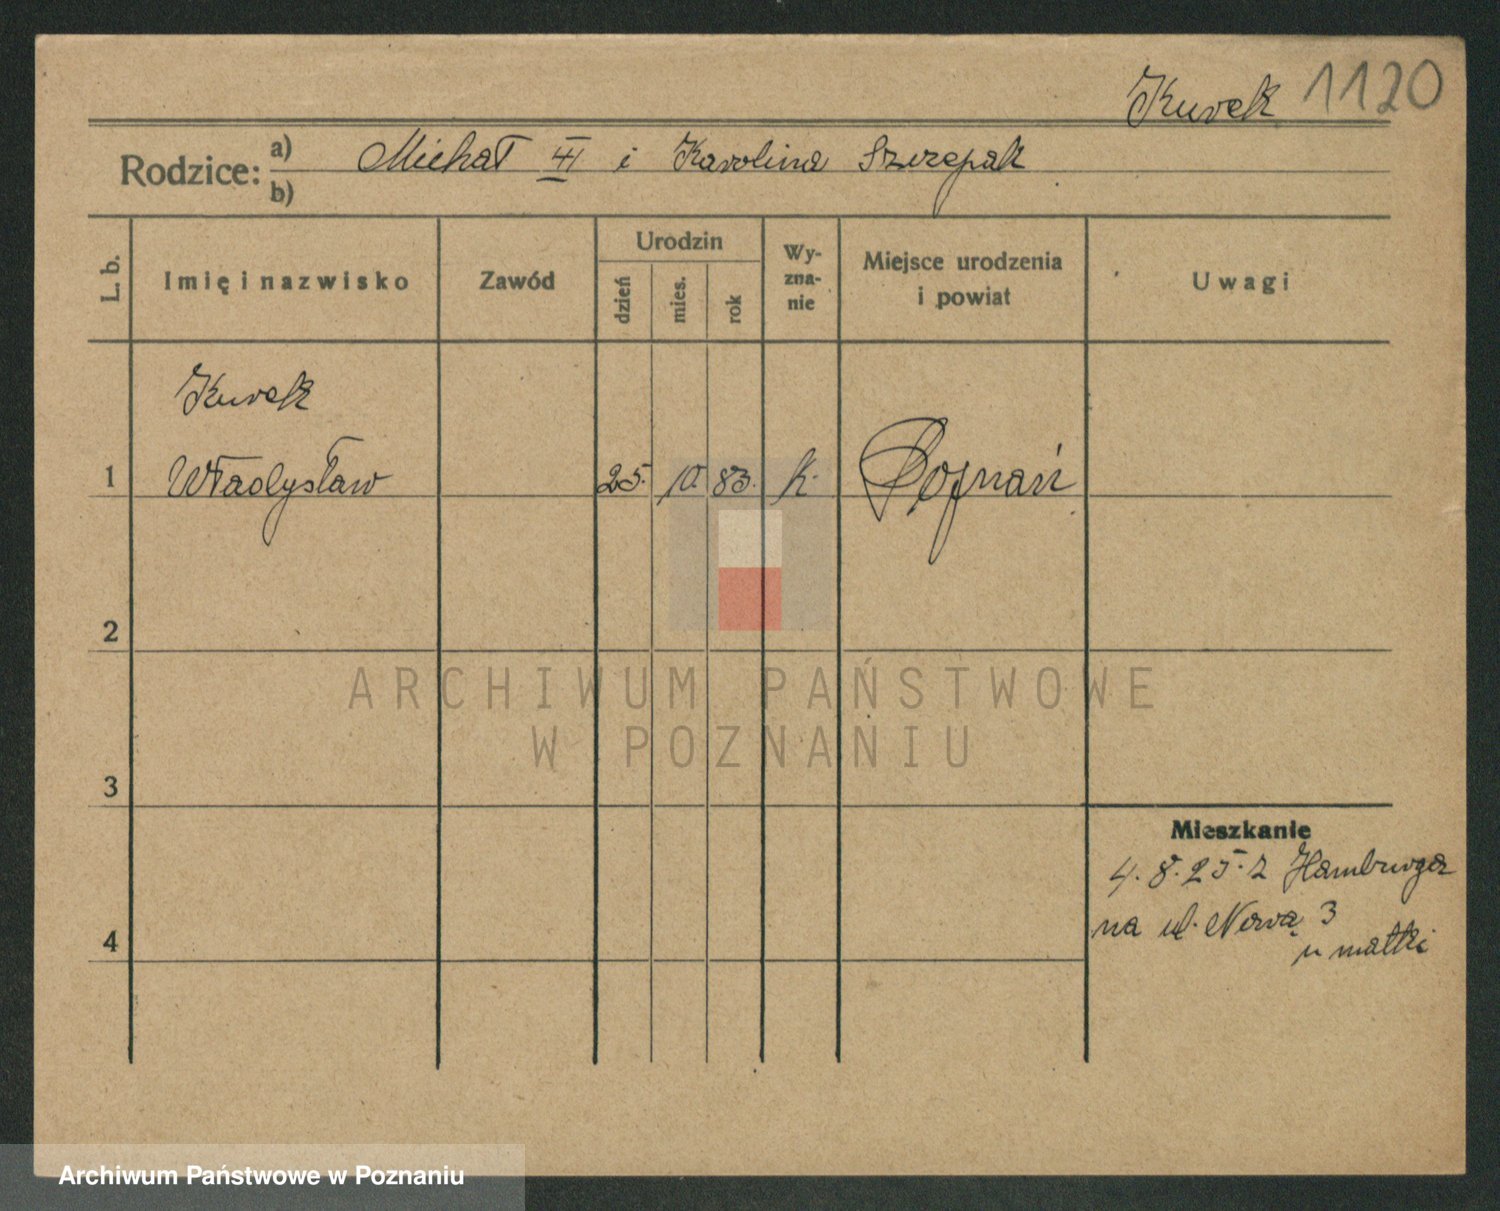 Kurek 1120
Rodzice: a) Michał III i Karolina Szczepak
b)
L. b. Imię i nazwisko Zawód Urodzin dzień mies. rok Wy-zna-nie Miejsce urodzenia i powiat Uwagi
Kurek
1 Władysław 25. 10. 83. k. Poznań
2
ARCHIWUM PAŃSTWOWE
W POZNANIU
3
Mieszkanie
4. 8. 25. z Hamburga
na ul. Nową 3
4 u matki
Archiwum Państwowe w Poznaniu